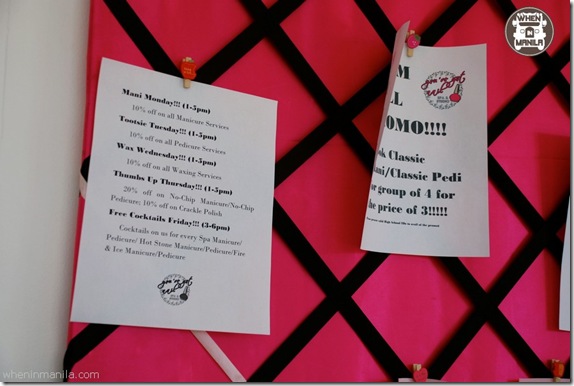 WHEN
IN
MANILA
Mani Monday!!! (1-5pm)
10% off on all Manicure Services
Tootsie Tuesday!!! (1-5pm)
10% off on all Pedicure Services
Wax Wednesday!!! (1-5pm)
10% off on all Waxing Services
Thumbs Up Thursday!!! (1-5pm)
20% off on No-Chip Manicure/No-Chip
Pedicure; 10% off on Crackle Polish
Free Cocktails Friday!!! (3-6pm)
Cocktails on us for every Spa Manicure/
Pedicure/ Hot Stone Manicure/Pedicure/Fire
& Ice Manicure/Pedicure
you've got
nailed
M
L
OMO!!!!
ok Classic
ani/Classic Pedi
or group of 4 for
the price of 3!!!!!
wheninmanila.com